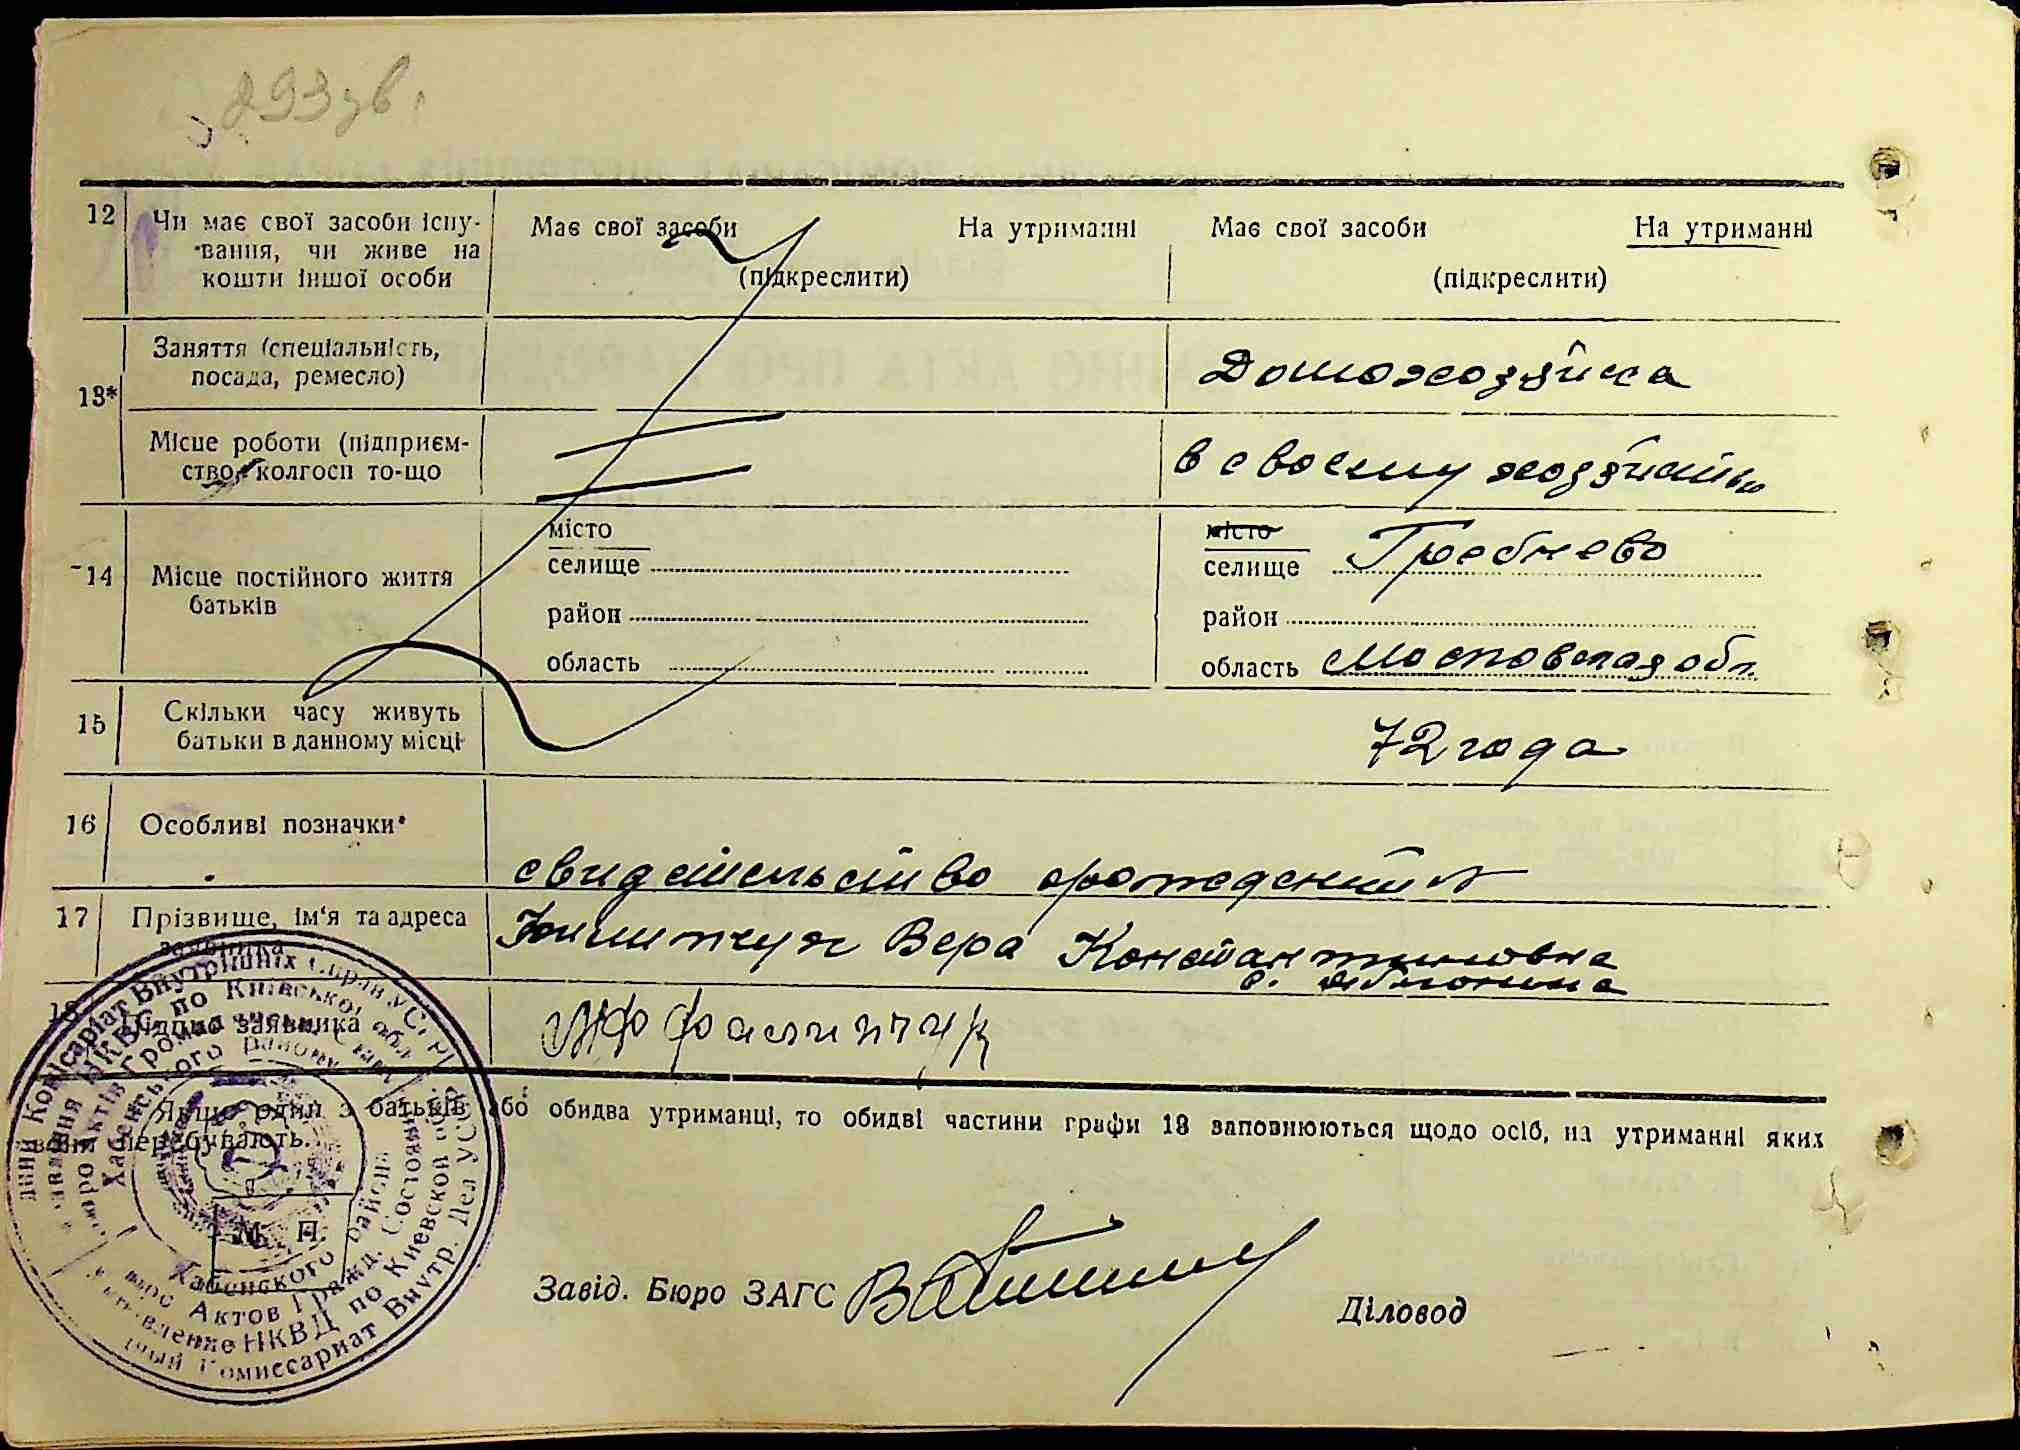 293 зв.
12
Чи має свої засоби існу-
вання, чи живе на
кошти іншої особи
Має свої засоби На утриманні
(підкреслити)
Має свої засоби На утриманні
(підкреслити)
13*
Заняття (спеціальність,
посада, ремесло)
Домохозяйка
Місце роботи (підприєм-
ство, колгосп то-що
в своему хозяйстве
14
Місце постійного життя
батьків
місто
селище
район
область
місто
селище Гребнево
район
область Московская обл.
15
Скільки часу живуть
батьки в данному місці
72 года
16
Особливі позначки*
свидетельство рождения
17
Прізвище, ім'я та адреса
заявника
Вера Константиновна
с.
18
Підпис заявника
Якщо один з батьків або обидва утриманці, то обидві частини графи 13 заповнюються щодо осіб, на утриманні яких
вони перебувають.
М. П.
Народний Комісаріат Внутрішніх Справ УСРР
Управління НКВС по Київській обл.
Бюро Актів Громадянськ. Стану
Хабенського району
Хабенского района
Бюро Актов Гражд. Состояния
Управление НКВД по Киевской обл.
Народный Комиссариат Внутр. Дел УССР
Завід. Бюро ЗАГС
Діловод